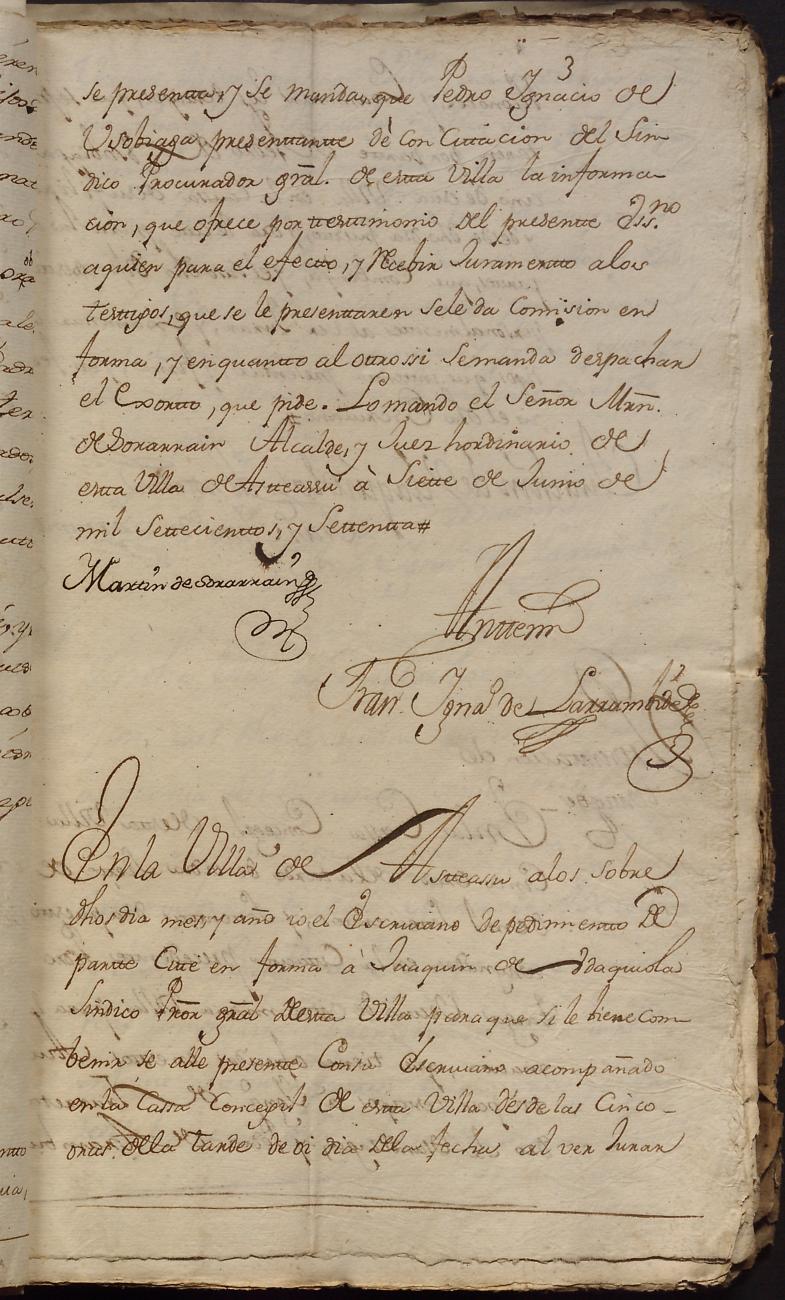 3
se presentta, y se manda, que Pedro Ygnacio de
Usobiaga presenttante dè con Cittacion del Sin-
dico Procurador gral. de estta Villa la informa-
cion, que ofrece por testtimonio del presentte Ess.no
aquien para el efectto, y Recebir Juramentto alos
testtigos, que se le presenttaren sele da Comision en
forma, y en quantto al ottrossi Semanda despachar
el Exortto, que pide. Lo mando el Señor Mrn.
de Sorarrain Alcalde, y Juez hordinario de
estta Villa de Astteassu à Siette de Junio de
mil Settecienttos, y Settentta#
Martin de Sorarrain
Anttemi
Fran.co Ygna.o de Larramendi
En la Villa de Asteassu alos sobre
dhos dia mes, y año io el Escriuano de pedimientto De
partte Cité en forma à Juaquin de Odaquiola
Sindico Pror gral Destta Villa para que si le biene com-
benir se alle presentte Con su Escriuano acompañado
en la Cassa Concegil de estta Villa désde las Cinco-
oras della tarde de oi dia de la fecha, al ver Jurar